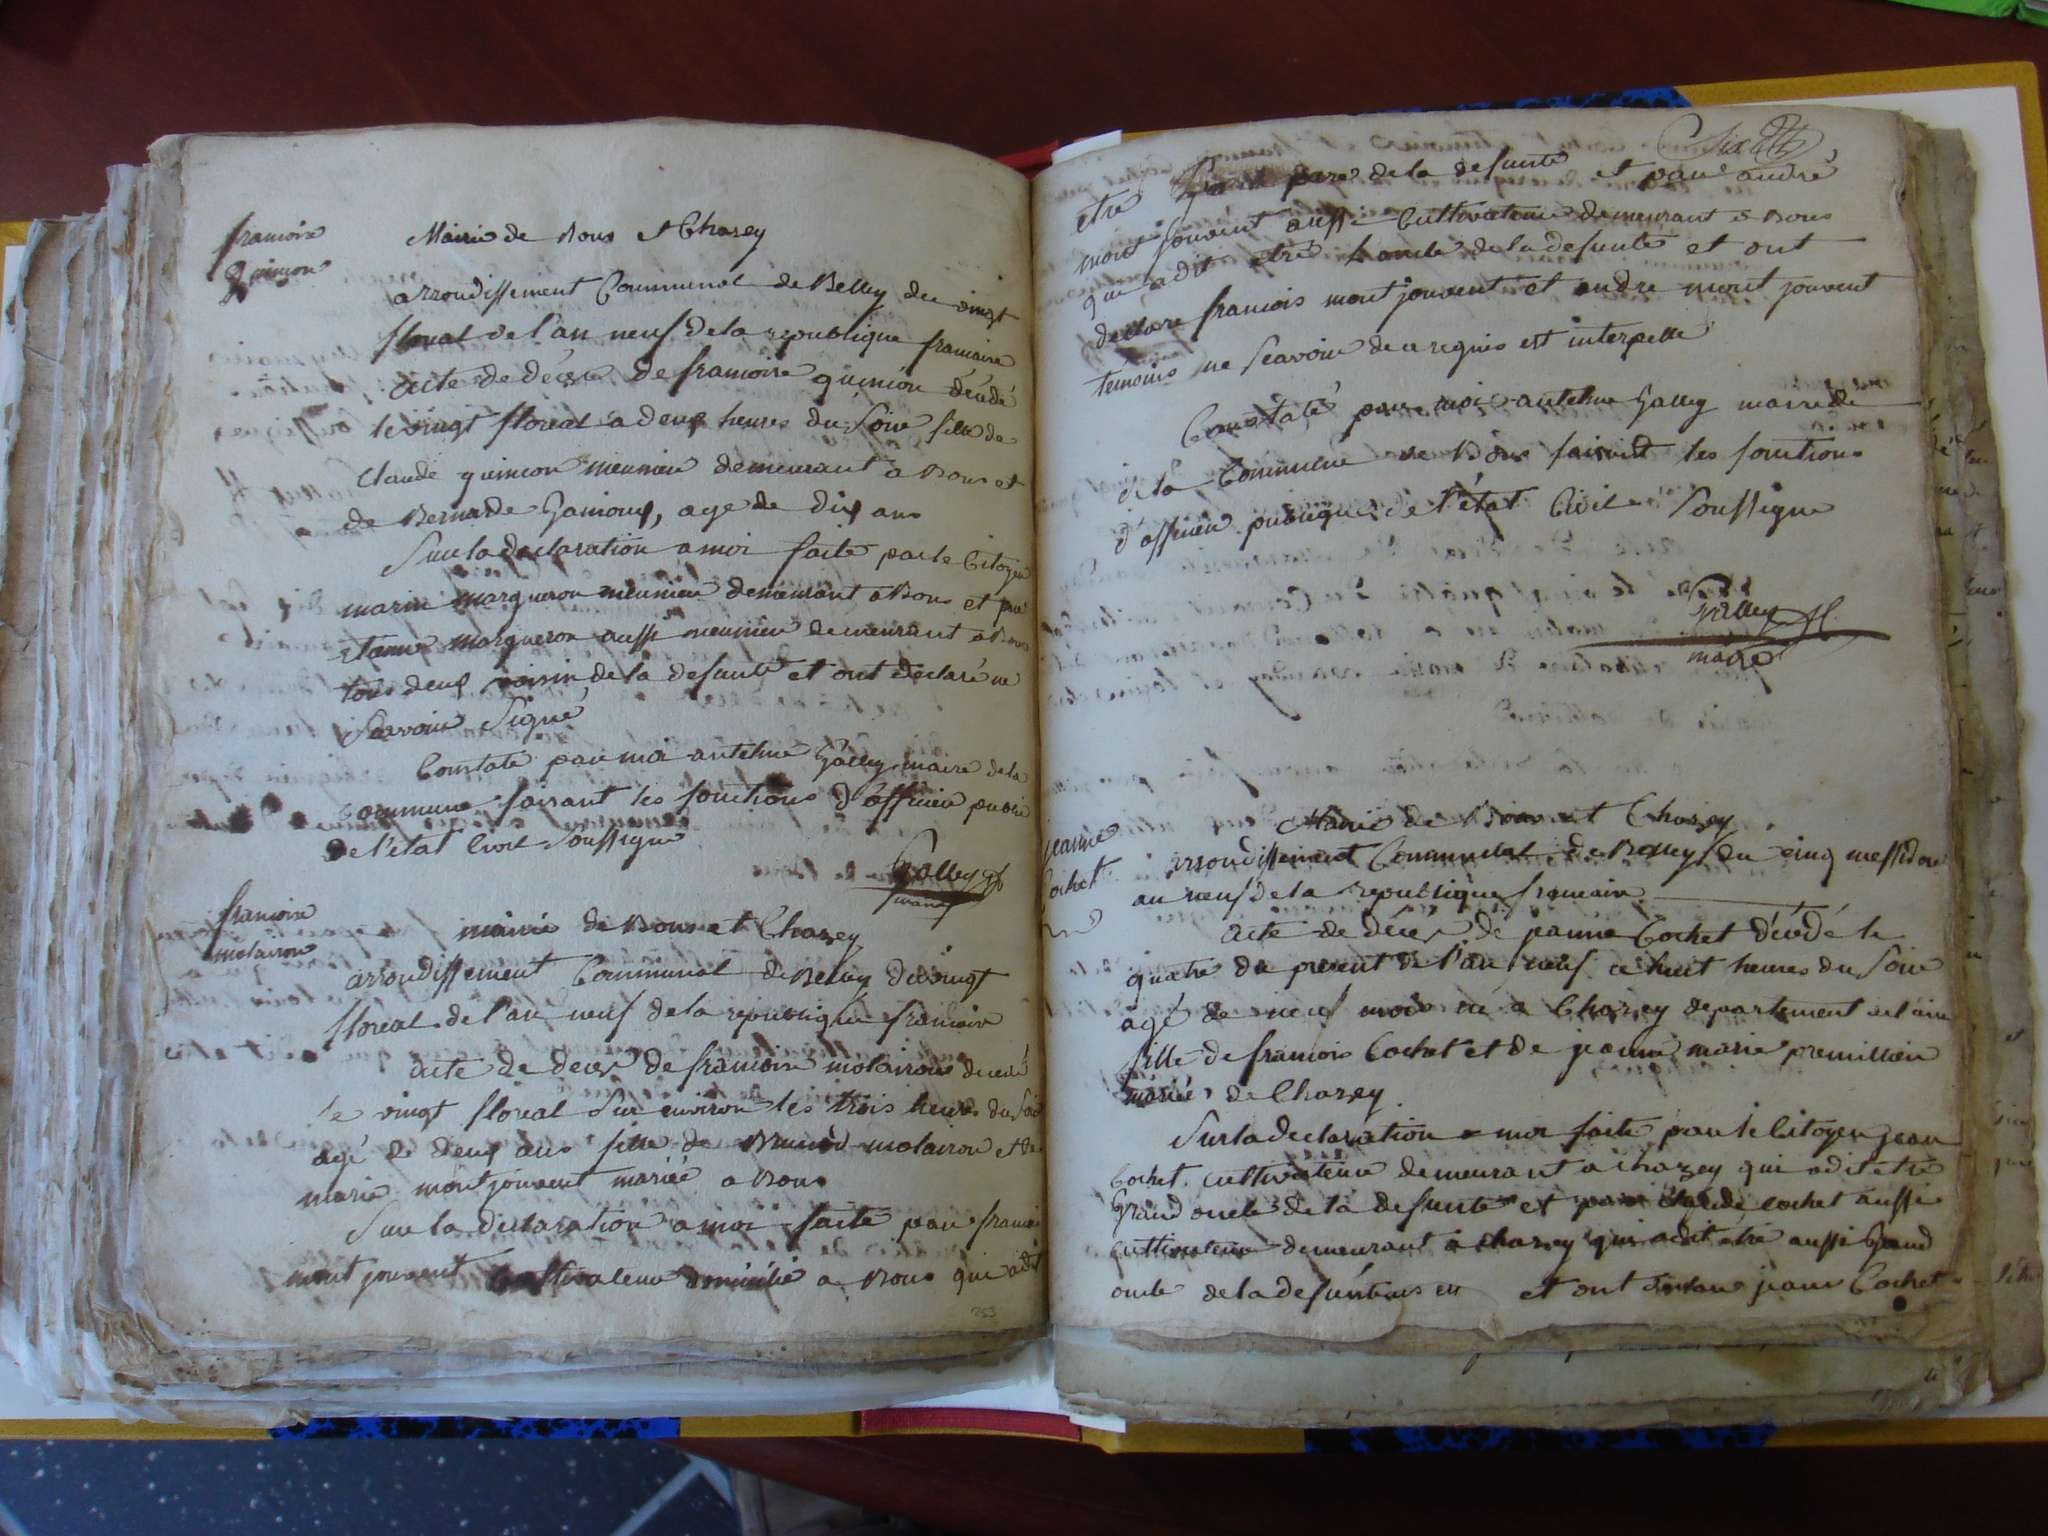 francoise
quinion
Mairie de Bons et Chazey
arrondissement Communal de Belley du vingt
floreal de l'an neuf de la republique francaise
acte de décès de francoise quinion décédé
le vingt floreal a deux heures du Soir fille de
Claude quinion meunier demeurant a Bons et
de Bernarde Ganioux, age de dix ans
Sur la declaration a moi faite par le Citoyen
marin marqueron meunier demeurant a Bons et par
marqueron aussi meunier demeurant a Bons
tous deux voisin de la defunte et ont declaré ne
Scavoir Signé
Constate par moi antelme Galley maire de la
commune faisant les fonctions d'officier public
de l'etat Civil Soussigne
Galley
maire
francoise
molairon
mairie de Bons et Chazey
arrondissement Communal de Belley du vingt
floreal de l'an neuf de la republique francaise
acte de deces de francoise molairon decedé
le vingt floreal Sur environ les trois heures du Soir
agé de deux ans fille de molairon et de
marie montjouvent mariée a Bons
Sur la declaration a moi faite par francois
mont jouvent Cultivateur domicilié a Bons qui a dit
253
Six
etre Grand pere de la defunte et par andré
mont jouvent aussi Cultivateur demeurant a Bons
qui a dit etre l'oncle de la defunte et ont
declare francois mont jouvent et andre mont jouvent
temoins ne Scavoir de ce requis et interpellé
Constaté par moi antelme Galley maire de
de la Commune de Bons faisant les fonctions
d'officier publique de l'état Civil Soussigne
Galley
maire
jeanne
Cochet
Mairie de Bons et Chazey
arrondissement Communal de Belley du cinq messidor
an neuf de la republique francaise
acte de décès de jeanne Cochet décédé le
quatre du present de l'an neuf a huit heures du Soir
agé de neuf mois né a Chazey departement de l'ain
fille de francois Cochet et de jeanne marie premillieu
mariés de Chazey
Sur la declaration a moi faite par le Citoyen jean
Cochet cultivateur demeurant a chazey qui a dit etre
Grand oncle de la defunte et par claude cochet aussi
cultivateur demeurant a chazey qui a dit etre aussi Grand
oncle de la defunte et ont declare jean Cochet